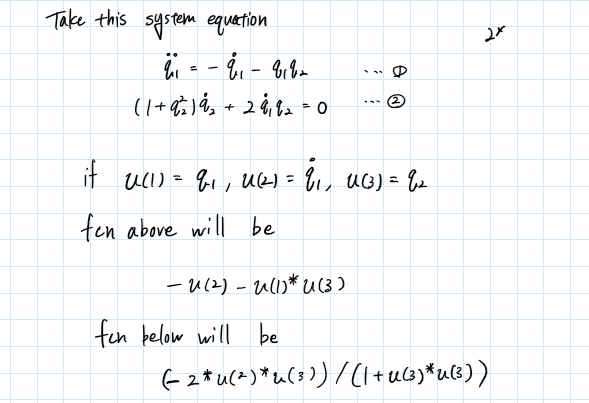 Take this system equation
2*
q̈₁ = - q̇₁ - q₁q₂ ... ①
(1+q₂²)q̇₂ + 2q̇₁q₂ = 0 ... ②
if u(1) = q₁, u(2) = q̇₁, u(3) = q₂
fcn above will be
- u(2) - u(1)*u(3)
fcn below will be
(- 2*u(2)*u(3)) / (1+u(3)*u(3))